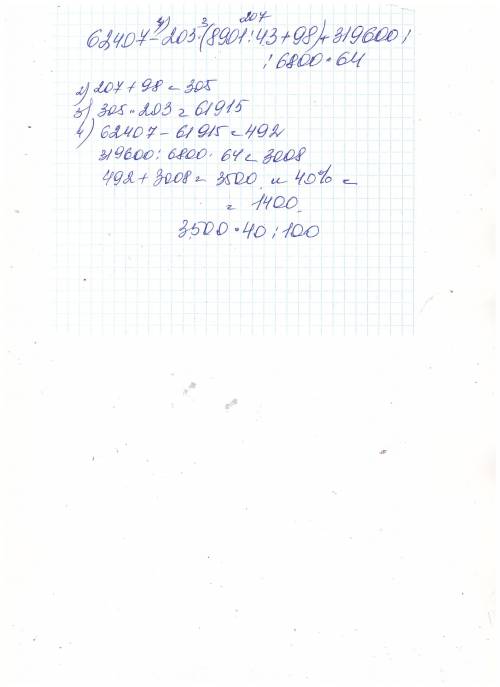 4) 3 207
62407-203·(8901:43+98)+319600:
:6800·64
2) 207+98=305
3) 305·203=61915
4) 62407-61915=492
319600:6800·64=3008
492+3008=3500 и 40%=
=1400.
3500·40:100